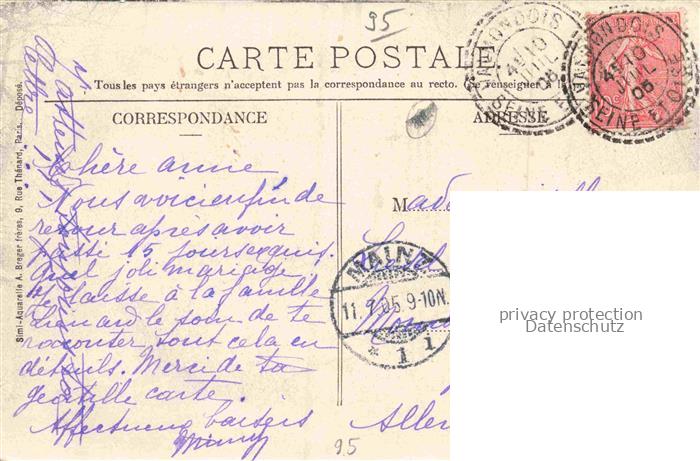 95
CARTE POSTALE
Tous les pays étrangers n'acceptent pas la correspondance au recto. (Se renseigner à la
CORRESPONDANCE
ADRESSE
VALMONDOIS
4E 10
JUIL
05
SEINE ET OISE
VALMONDOIS
4E 10
JUIL
05
SEINE ET OISE
Chère anne
Nous voici enfin de
retour après avoir
passé 15 jours exquis.
Quel joli mariage
Je laisse à la famille
Lienard le soin de te
raconter tout cela en
détails. Merci de ta
gentille carte.
Affectueux baisers
Mimy
M
MAINZ
11.7.05.9-10N.
* 1 1
Allem
95
Simi-Aquarelle A. Breger frères, 9, Rue Thénard, Paris. Déposé.
privacy protection
Datenschutz